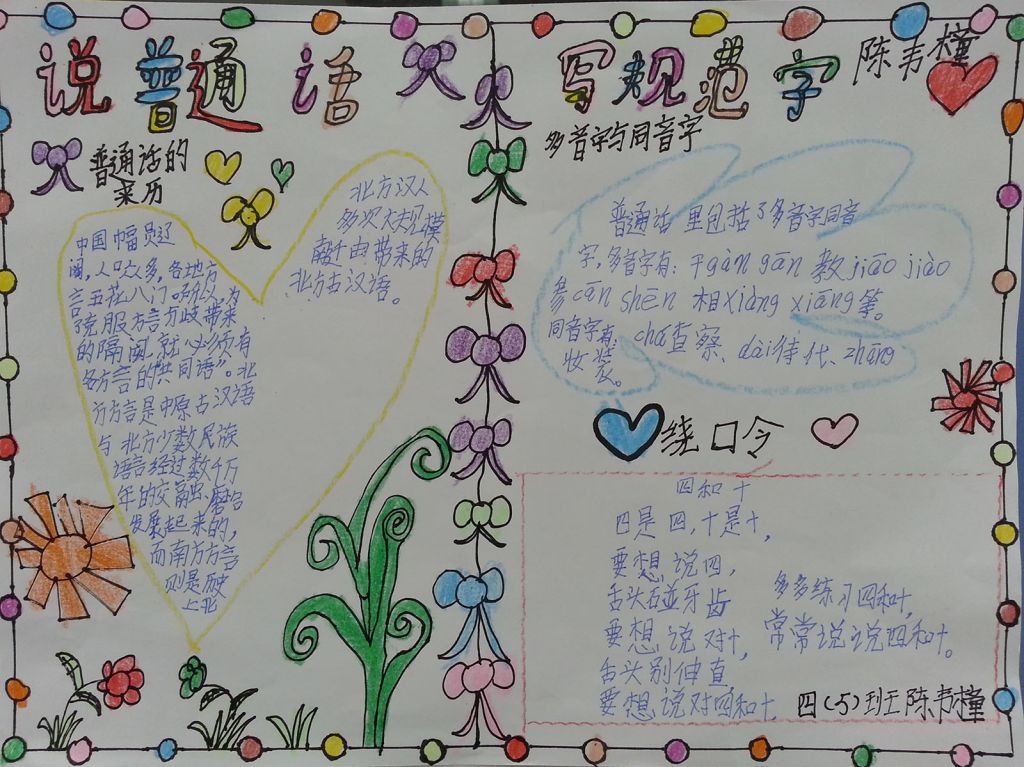 说普通语
写规范字
陈韦橦
普通话的
来历
中国幅员辽
阔，人口众多，各地方
言五花八门。所以，为
了克服方言分歧带来
的隔阂，就必须有
各方言的“共同语”。北
方方言是中原古汉语
与北方少数民族
语言经过数千万
年的交融、磨合
发展起来的，
而南方方言
则是历史
上北
北方汉人
多次大规模
南迁由带来的
北方古汉语。
多音字与同音字
普通话里包括了多音字同音
字，多音字有：干gàn gān 教jiāo jiào
参cān shēn 相xiàng xiāng 等。
同音字有：chá查察、dài待代、zhāng
妆装。
绕口令
四和十
四是四，十是十，
要想说四，
舌头石並牙齿
要想说对十，
舌头别伸直
要想说对四和十，
多多练习四和十，
常常说说四和十。
四(5)班陈韦橦